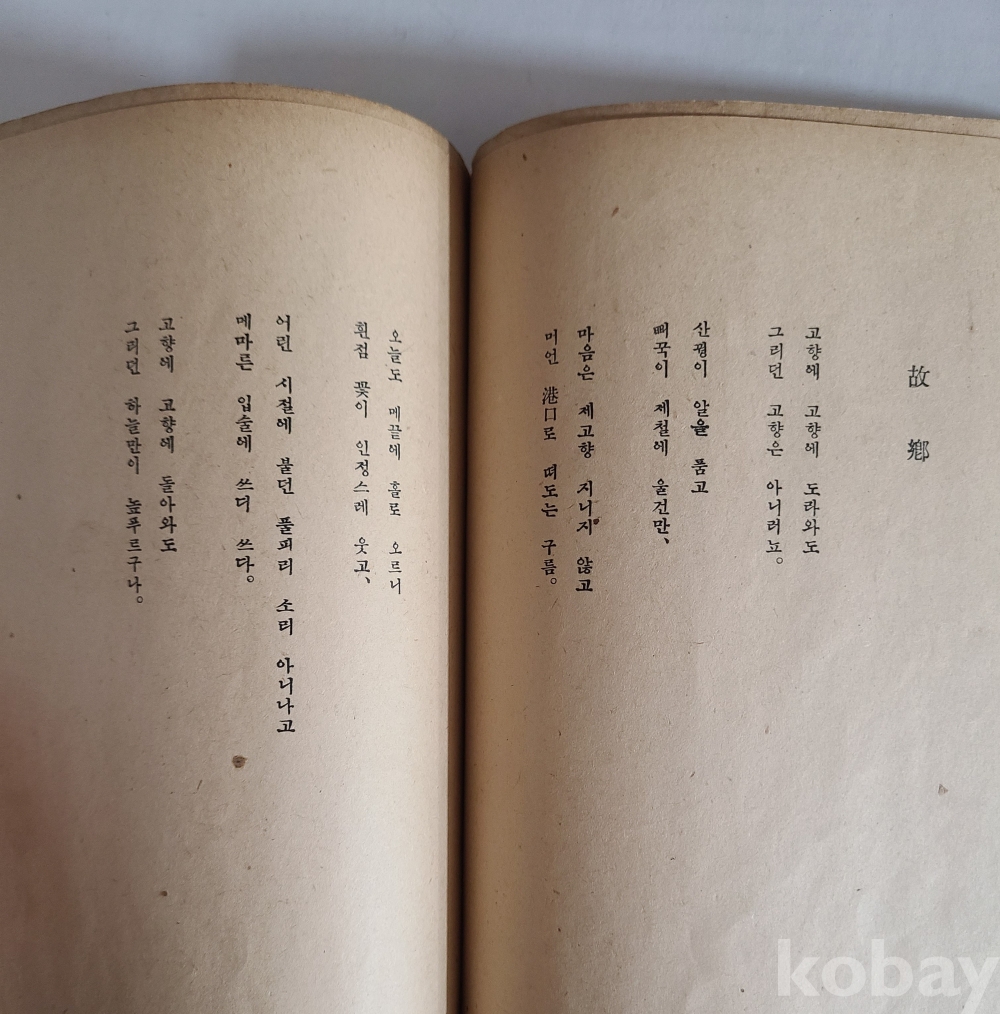 故鄕
고향에 고향에 도라와도
그리던 고향은 아니러뇨。
산꿩이 알을 품고
뻐꾹이 제철에 울건만、
마음은 제고향 지니지 않고
머언 港口로 떠도는 구름。
오늘도 메끝에 홀로 오르니
흰점 꽃이 인정스레 웃고、
어린 시절에 불던 풀피리 소리 아니나고
메마른 입술에 쓰디 쓰다。
고향에 고향에 돌아와도
그리던 하늘만이 높푸르구나。
kobay